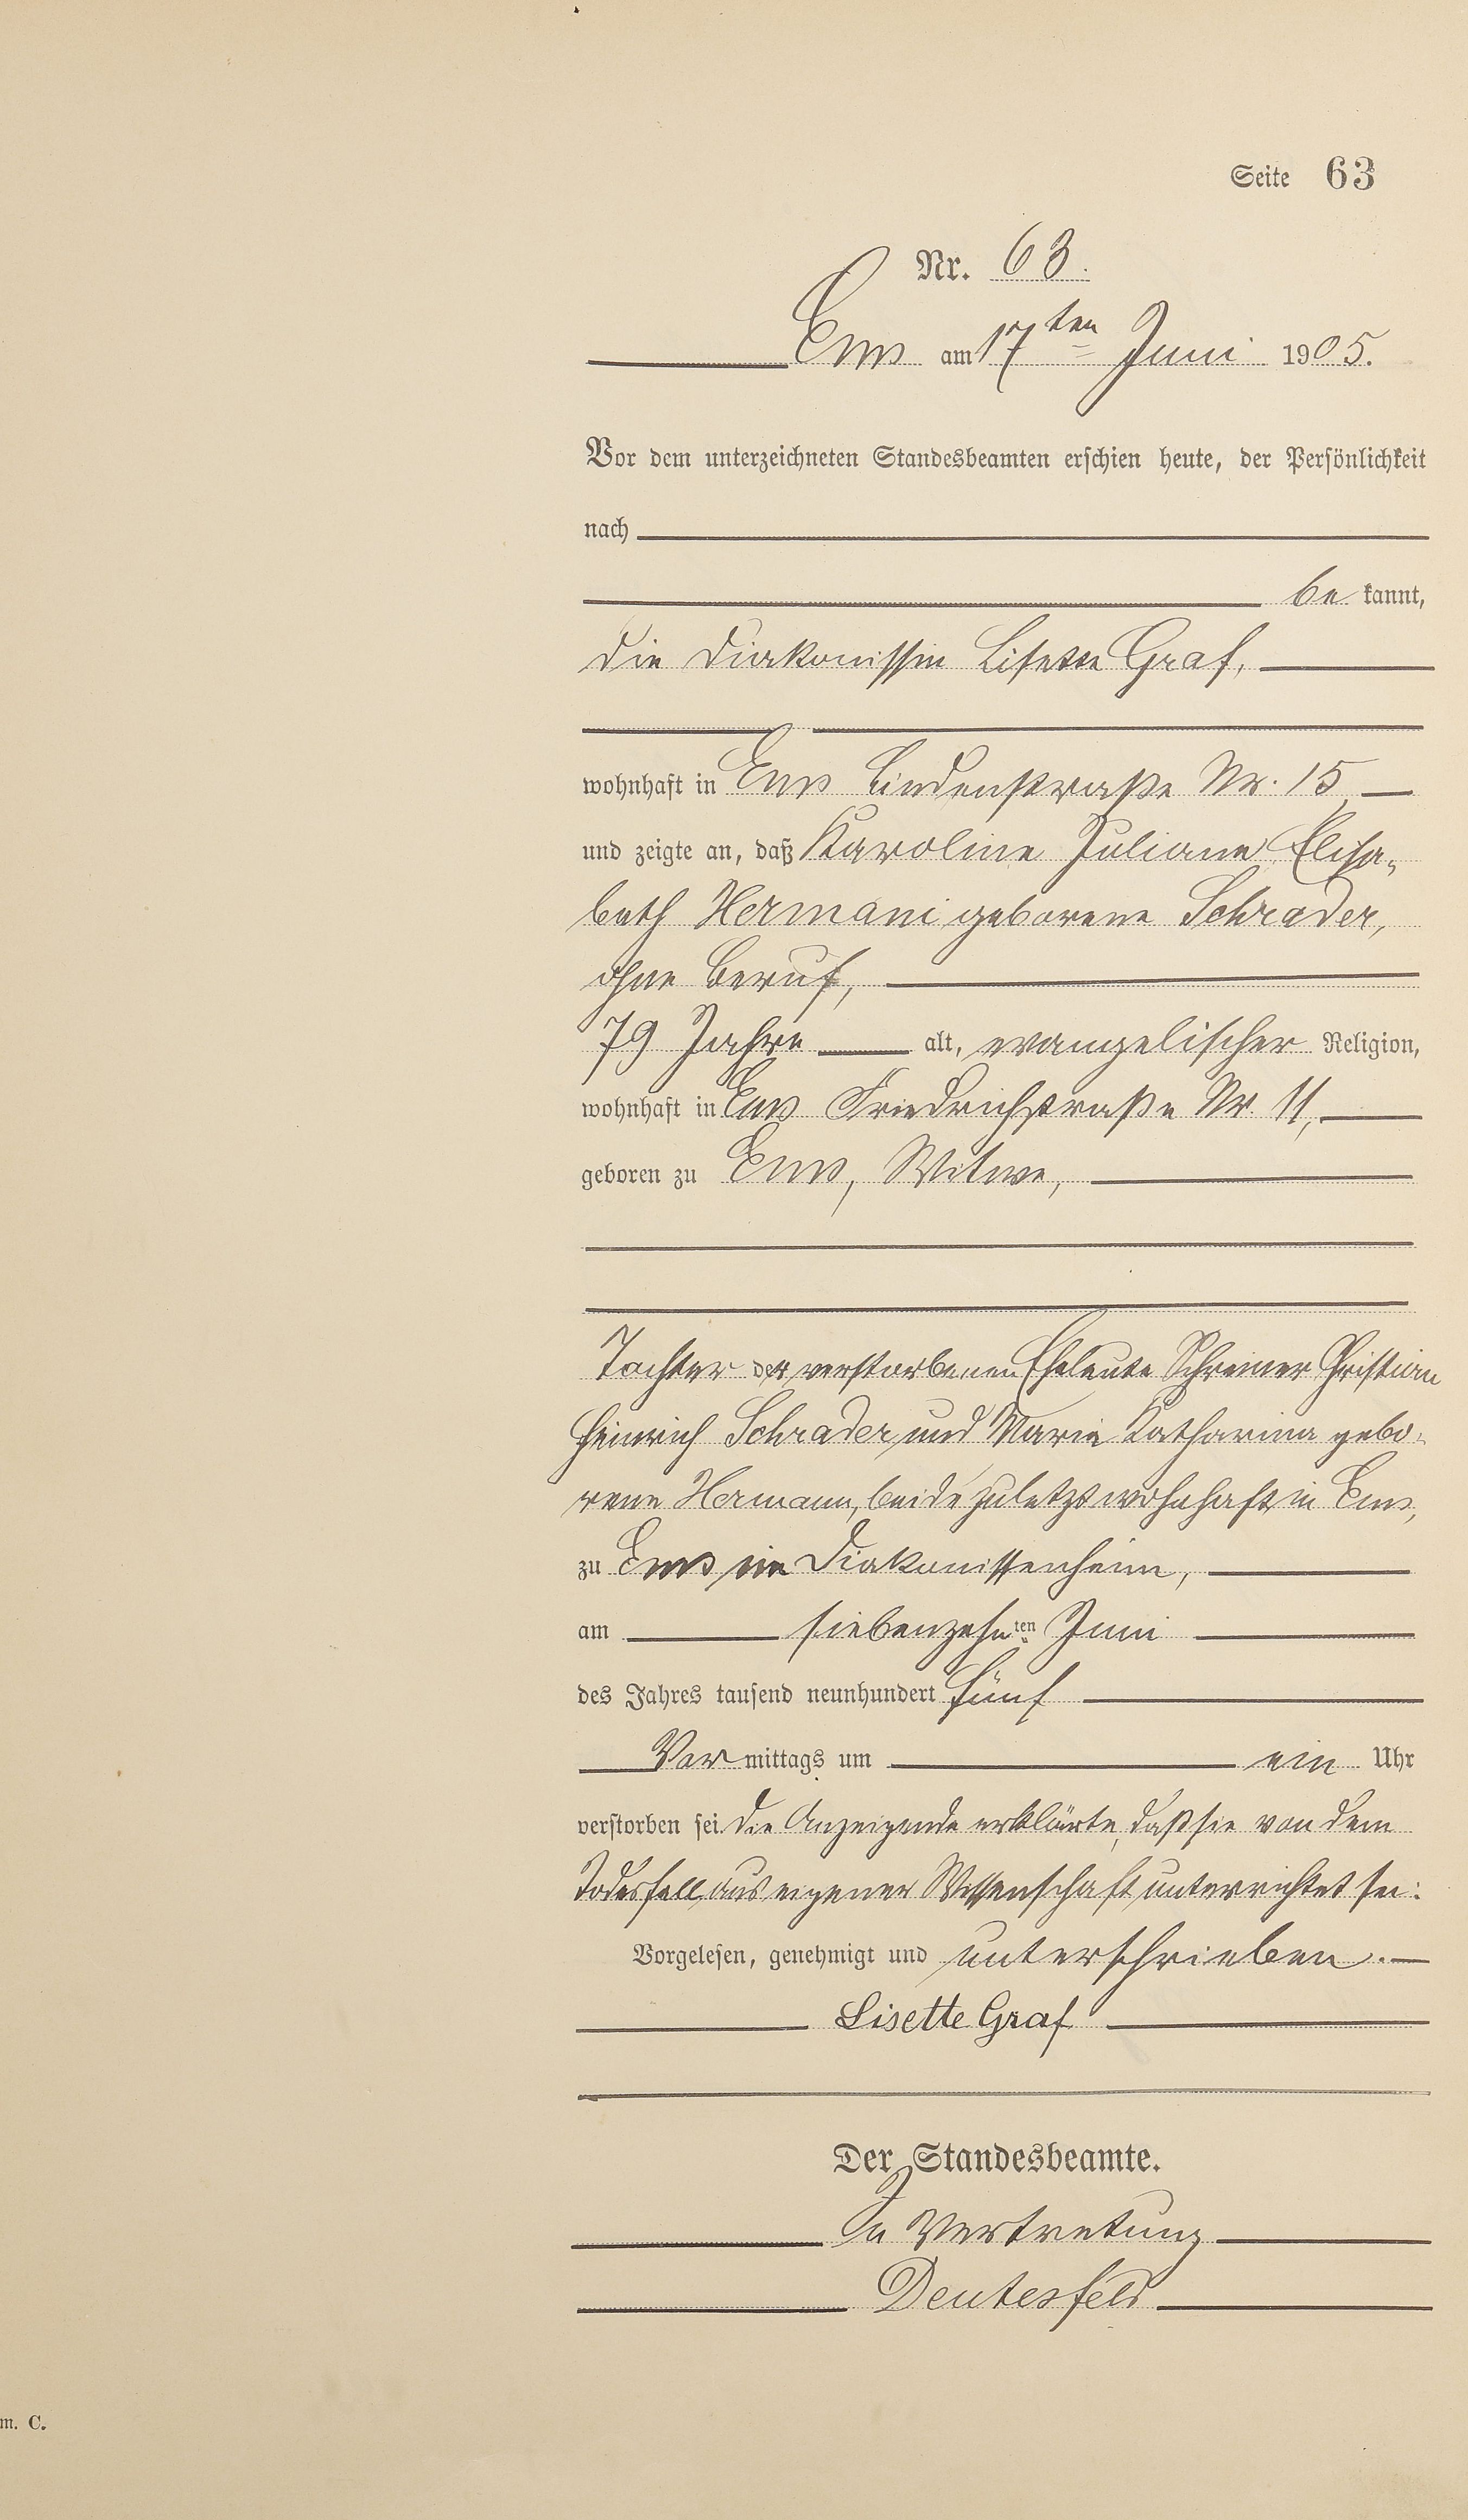 Seite 63
Nr. 63.
Ems am 17ten Juni 1905.
Vor dem unterzeichneten Standesbeamten erschien heute, der Persönlichkeit
nach
be kannt,
die Diakonissin Lisette Graf,
wohnhaft in Ems Lindenstraße Nr. 15,
und zeigte an, daß Karoline Juliane Elisa-
beth Hermani geborene Schrader,
ohne Beruf,
79 Jahre alt, evangelischer Religion,
wohnhaft in Ems Friedrichstraße Nr. 11,
geboren zu Ems, Witwe,
Tochter der verstorbenen Eheleute Schreiner Christian
Heinrich Schrader und Marie Katharina gebo-
rene Hermann, beide zuletzt wohnhaft in Ems,
zu Ems im Diakonissenheim,
am siebenzehnten Juni
des Jahres tausend neunhundert fünf
Vor mittags um ein Uhr
verstorben sei. Die Anzeigende erklärte, daß sie von dem
Todesfall aus eigener Wissenschaft unterrichtet sei.
Vorgelesen, genehmigt und unterschrieben.
Lisette Graf
Der Standesbeamte.
In Vertretung
Deutesfeld
m. C.